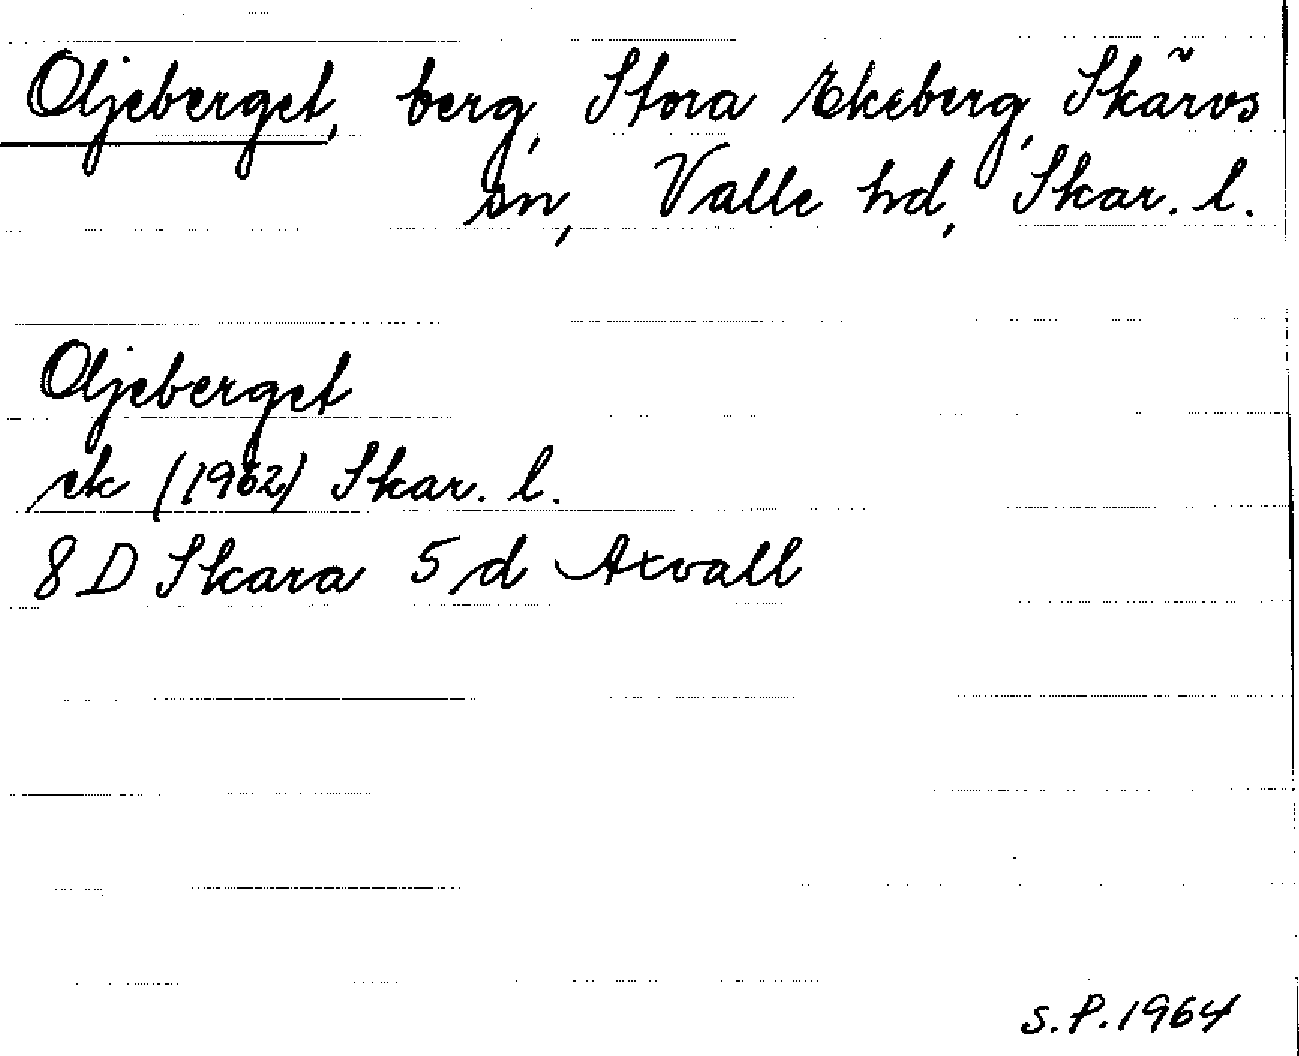 Oljeberget, berg, Stora Ekeberg, Skärvs
sn, Valle hd, Skar. l.
Oljeberget
ek (1962) Skar. l.
8 D Skara 5 d Axvall
S.P.1964